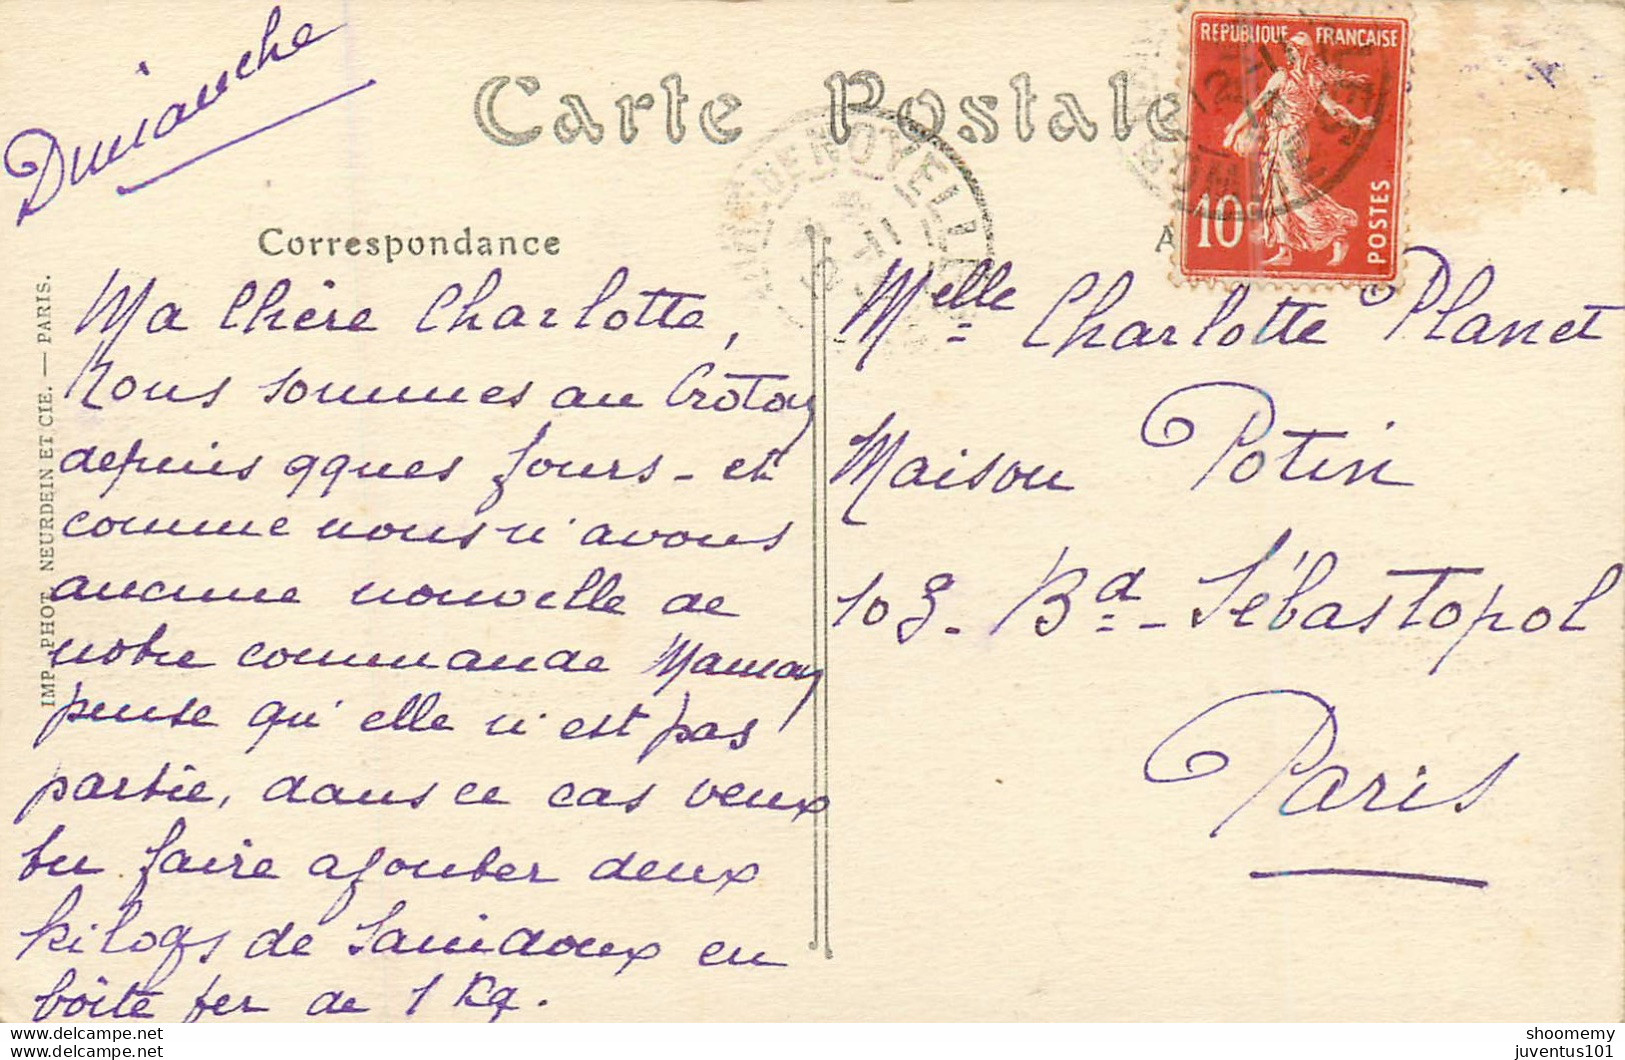 Dimanche
Carte Postale
REPUBLIQUE FRANÇAISE
10
POSTES
Correspondance
IMP. PHOT. NEURDEIN ET CIE. — PARIS.
Ma Chère Charlotte,
Nous sommes au Crotoy
depuis qques jours - et
comme nous n'avons
aucune nouvelle de
notre commande Maman
pense qu'elle n'est pas
partie, dans ce cas veux
tu faire ajouter deux
kilogs de Saindoux en
boîte fer de 1 Kg.
Melle Charlotte Planet
Maison Potin
103 - Bd - Sébastopol
Paris
delcampe.net
delcampe.net
shoomemy
juventus101